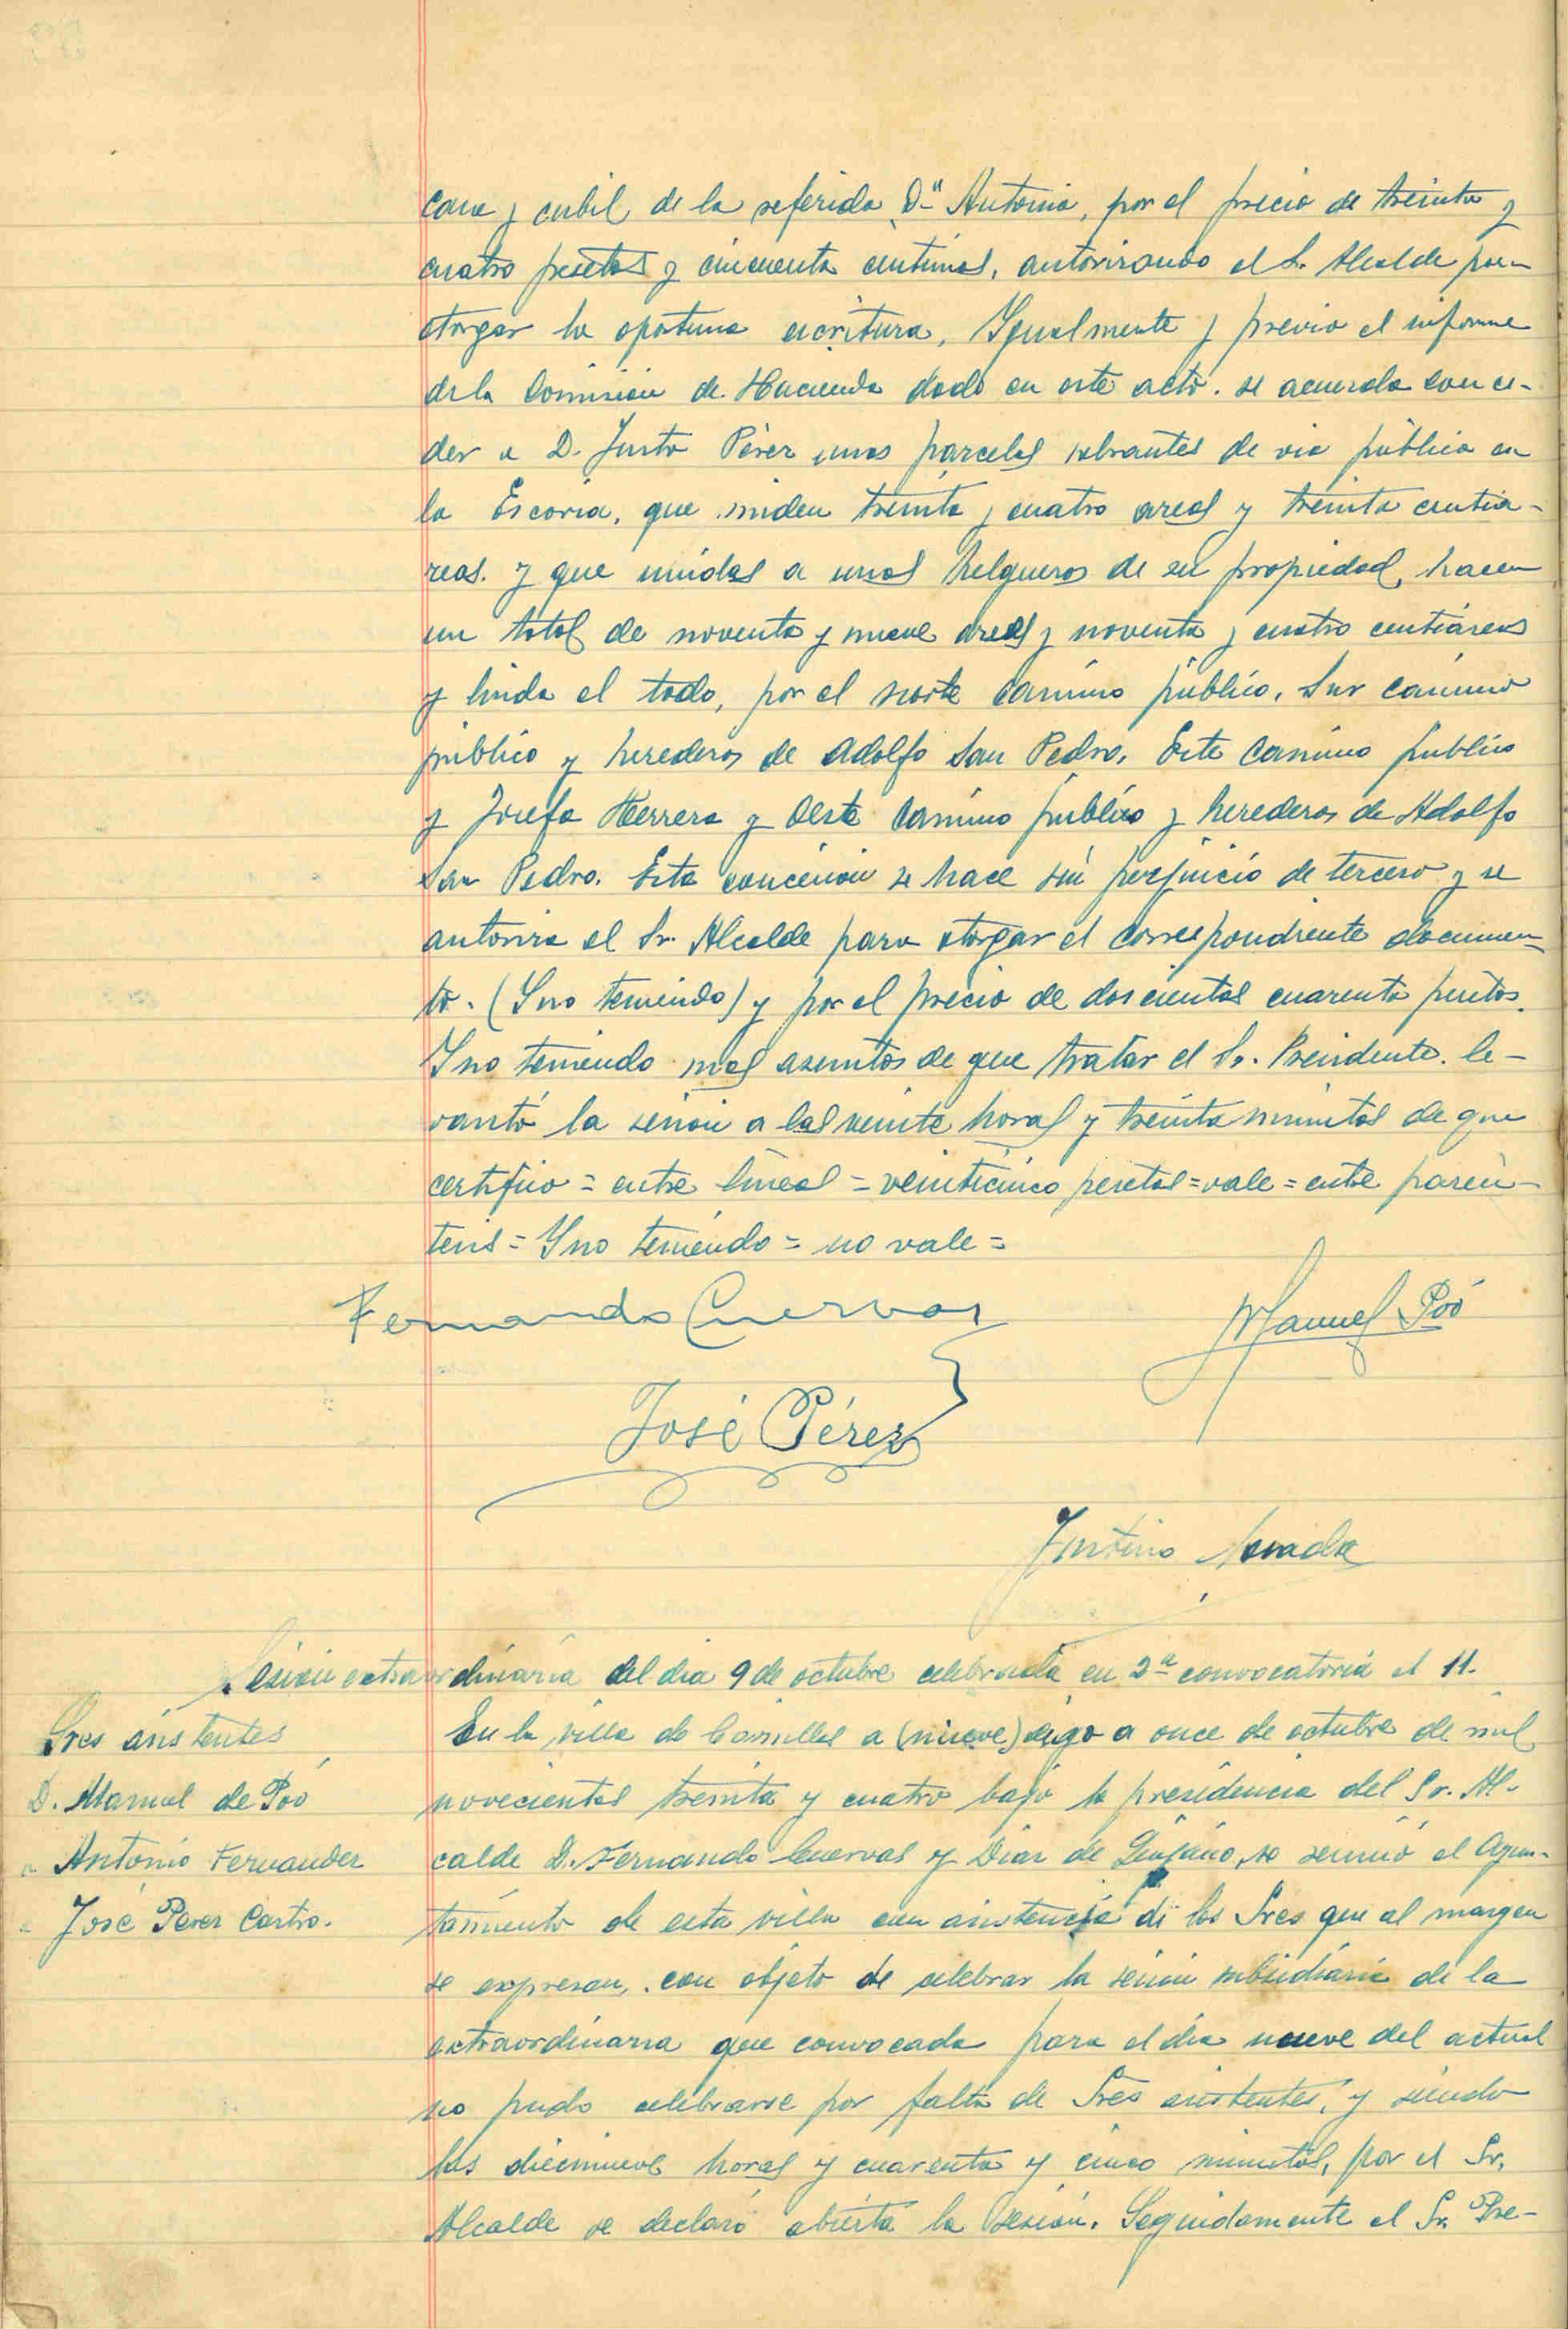 casa y cubil de la referida Dª Antonia, por el precio de treinta y
cuatro pesetas y cincuenta centimos, autorizando al Sr. Alcalde para
otorgar la oportuna escritura. Igualmente y previo el informe
de la Comision de Hacienda dado en este acto. se acuerda conce-
der a D. Justo Pérez unas parcelas sobrantes de via pública en
la Escoria, que miden treinta y cuatro areas y treinta centia-
reas. y que unidas a unos helgueros de su propiedad, hacen
un total de noventa y nueve areas y noventa y cuatro centiáreas
y linda el todo, por el norte camino público, Sur camino
público y herederos de Adolfo San Pedro, Este camino publico
y Josefa Herrera y Oeste camino publico y herederos de Adolfo
San Pedro. Esta concesion se hace sin perjuicio de tercero y se
autoriza al Sr. Alcalde para otorgar el correspondiente documen-
to. (Y no teniendo) y por el precio de doscientas cuarenta pesetas.
Y no teniendo mas asuntos de que tratar el Sr. Presidente. le-
vantó la sesion a las veinte horas y treinta minutos de que
certifico = entre lineas = veinticinco pesetas = vale = entre parén-
tesis = Y no teniendo = no vale =
Fernando Cuervas
Manuel Póo
José Pérez
Justino
Sesion extraordinaria del dia 9 de octubre celebrada en 2ª convocatoria el 11.
Sres asistentes
D. Manuel de Póo
" Antonio Fernandez
" José Perez Castro.
En la villa de Comillas a (nueve) digo a once de octubre de mil
novecientos treinta y cuatro bajo la presidencia del Sr. Al-
calde D. Fernando Cuervas y Diaz de Quijano, se reunió el Ayun-
tamiento de esta villa con asistencia de los Sres que al margen
se expresan, con objeto de celebrar la sesion subsidiaria de la
extraordinaria que convocada para el dia nueve del actual
no pudo celebrarse por falta de Sres asistentes, y siendo
las diecinueve horas y cuarenta y cinco minutos, por el Sr.
Alcalde se declaró abierta la sesion. Seguidamente el Sr. Pre-